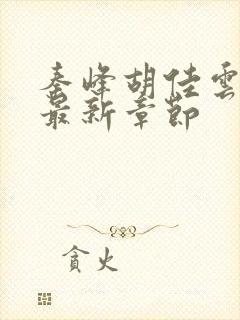 秦峰胡佳雲
最新章節
貪火